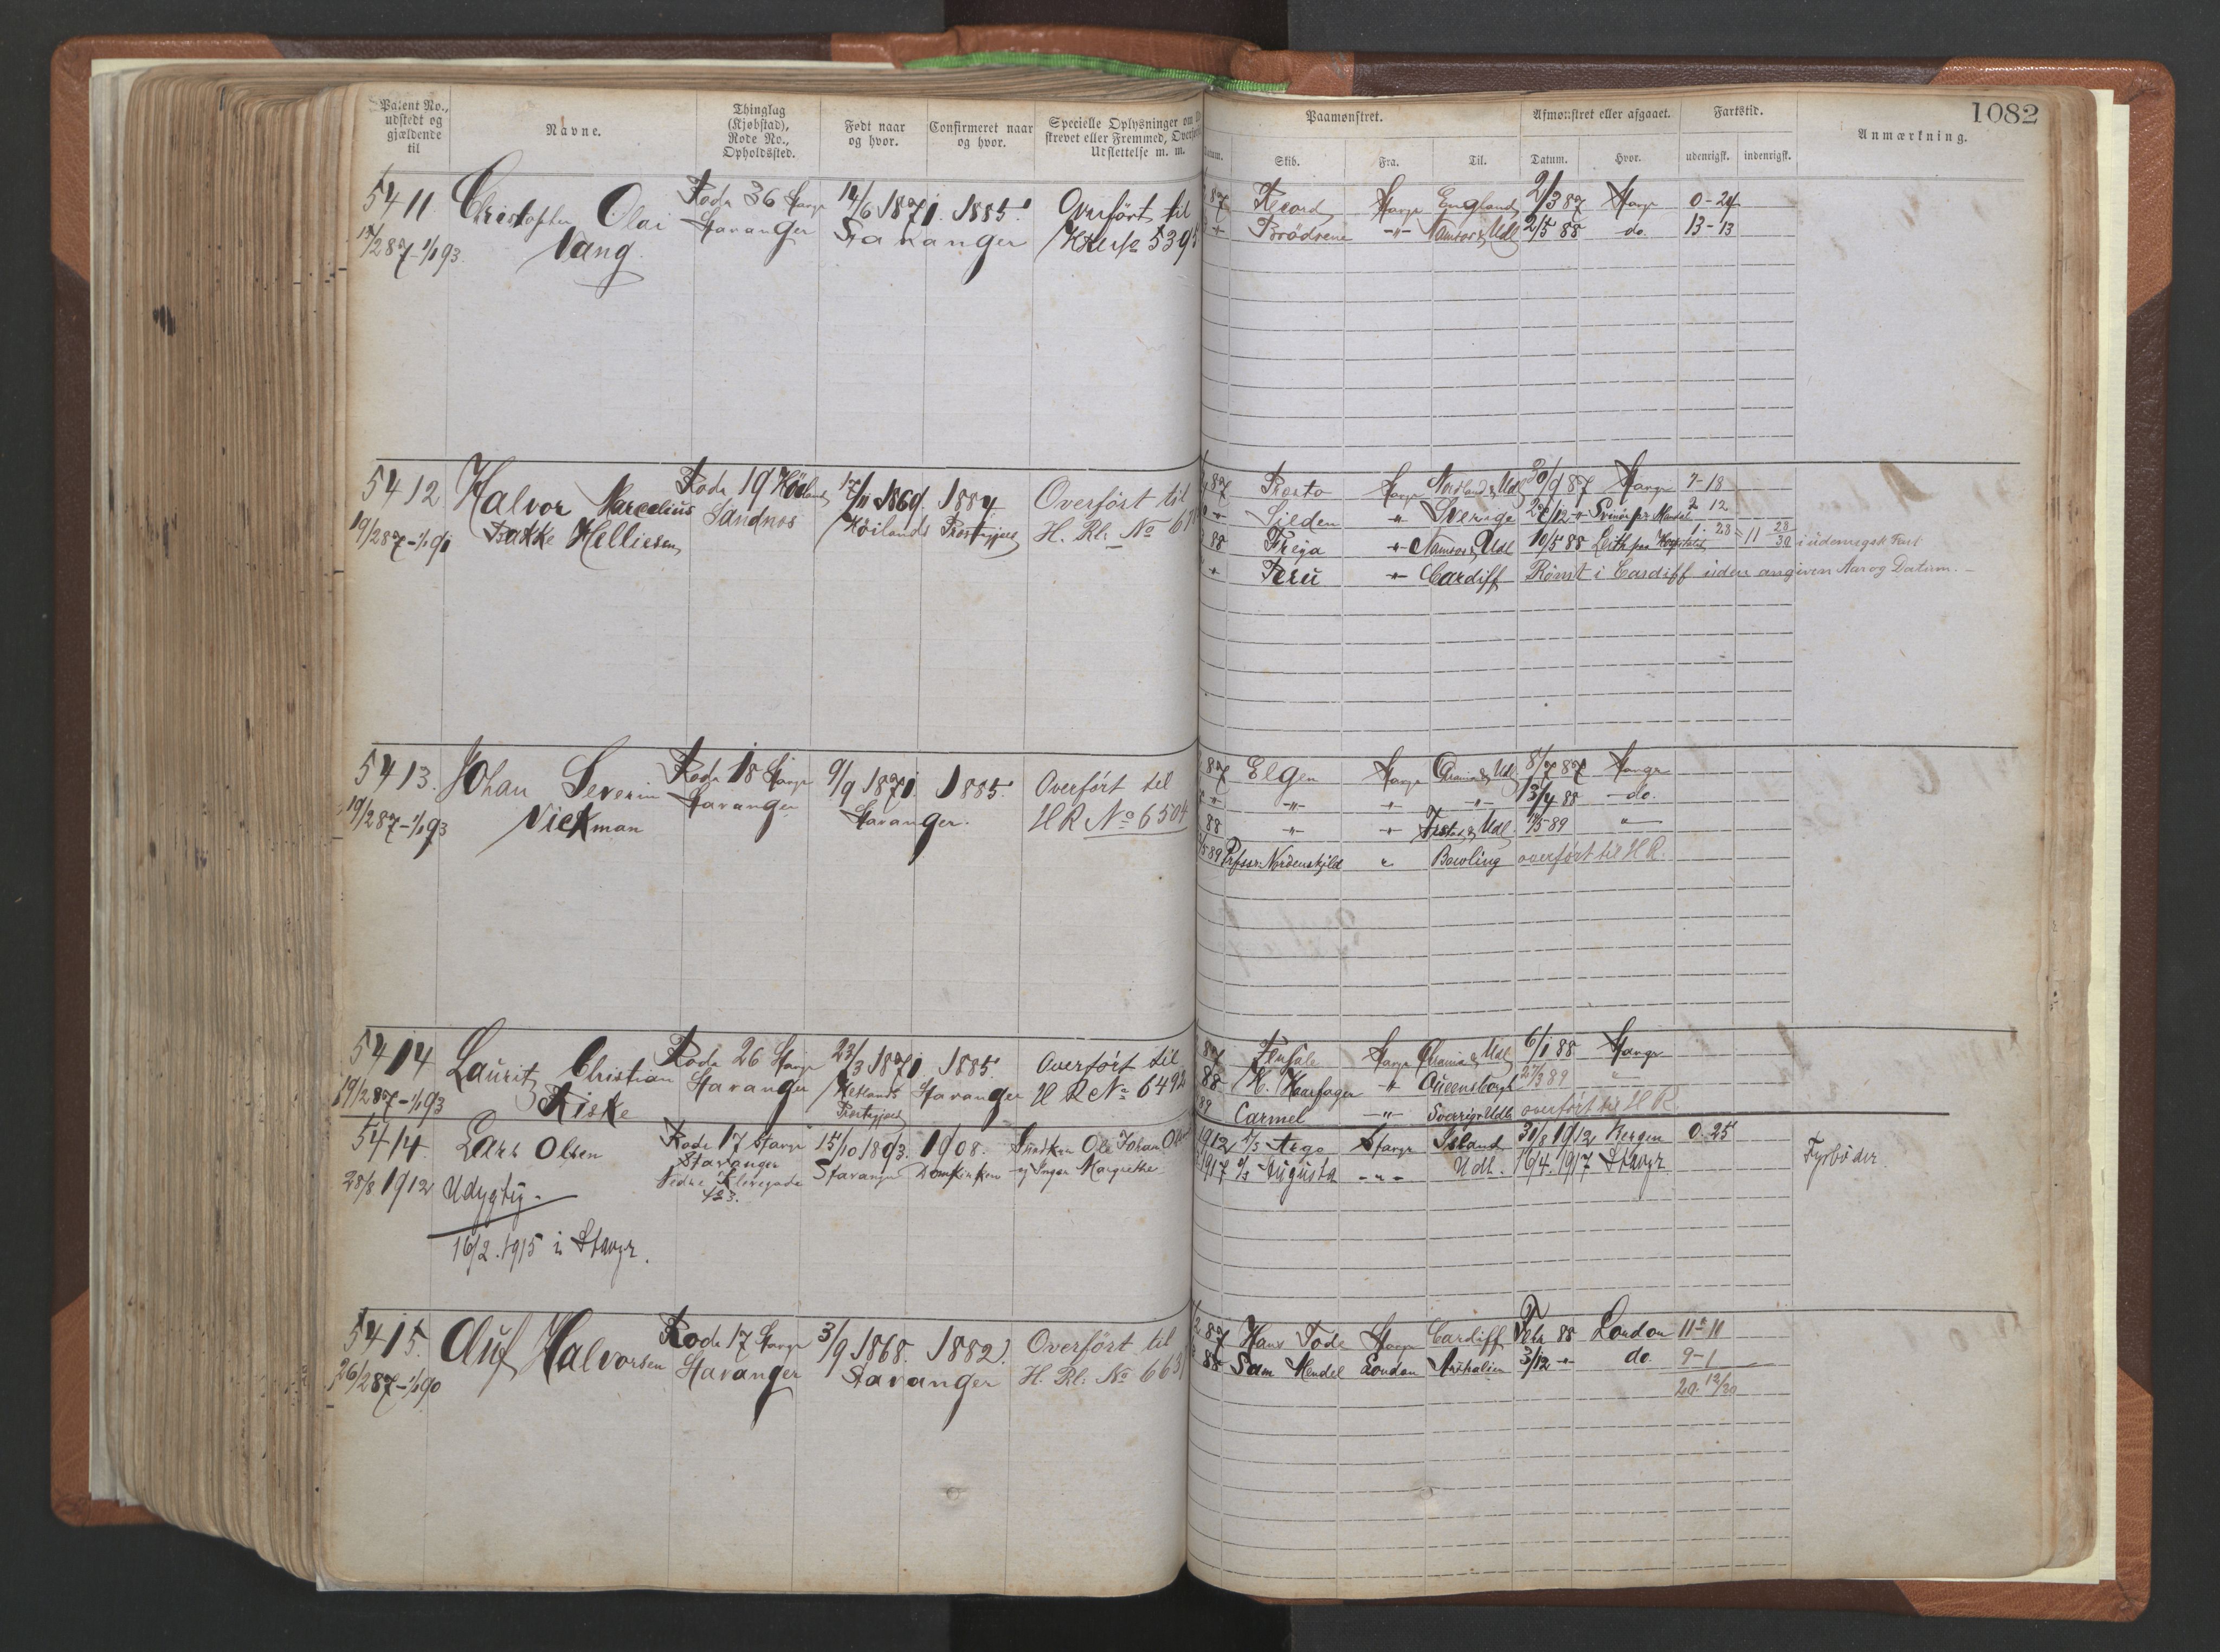 1082
Patent No., udstedt og gjældende til
Navne.
Thinglag (Kjøbstad), Rode No., Opholdssted.
Født naar og hvor.
Confirmeret naar og hvor.
Specielle Oplysninger om
skrevet eller Fremmed,
Utslettelse m. m.
Paamønstret.
Skib.
Fra.
Til.
Afmønstret eller afgaaet.
Datum.
Hvor.
Fartstid.
udenrigsk.
indenrigsk.
Anmærkning.
5411 Christopher Olai Rode 36 Stavgr 14/6 1871. 1885. Overført til
17/2 87-1/1 93 Vang Stavanger Stavanger
87 Fjeord Stavgr England 2/3 87 Stavgr 0-24
Brødrene -"- Namsos & Udl 2/5 88 do. 13-13
5412 Halvor Marcelius Rode 19 17/11 1869. 1884 Overført til
19/2 87-1/1 91 Bakke Helliesen Sandnes Høilands Prestegjeld H. Rl: No 67
87 Presto Stavgr Nordland & Udl 30/9 87 Stavgr 7-18
Silden " Sverige 28/12 " Svinør pr Mandal 2 12
88 Freja " Namsos & Udl 10/5 88 Leith paa Hospital 1-28 = 11 28/30 i udenrigsk Fart
Peru " Cardiff Rømt i Cardiff uden angiven Aar og Datum.-
5413. Johan Severin Rode 18 Stavgr 9/9 1871. 1885. Overført til
19/2 87-1/1 93 Vickman Stavanger Stavanger. H R No 6504
87 Elgen Stavgr & Udl. 8/7 87 Stavgr
-"- " -"- 13/4 88 -do.
88 -"- " & Udl. 1/5 89 "
89 Prfessr. Nordenskjold " Bowling overført til H R.
5414 Laurits Christian Rode 26 Stavgr 23/3 1871. 1885. Overført til
19/2 87-1/1 93 Riske Stavanger Hetlands Prestegjeld Stavanger H R No 6492
87 Stavgr & Udl 6/1 88 Stavgr
88 H. Haarfager " Queensborgh 27/3 89 "
89 Carmel -"- Sverrige Udl. overført til H R.
5414. Lars Olsen Rode 17 Stavgr 15/10 1893. 1908. Ole Johan
28/8 1912 Udygtig- Stavanger Stavanger Domkirken og Inger Margrethe
Nedre Klevegade
423.
16/2. 1915 i Stavgr.
1912 Argo Stavgr Island 30/8 1912 Bergen 0.25
1917 Augusta -"- Udl. 16/4. 1917 Stavgr Fyrbøder
5415. Oluf Halvorsen Rode 17 Stavgr 3/9 1868. 1882. Overført til
26/2 87-1/1 90 Stavanger Stavanger H. Rl: No 663
87 Hans Tode Stavgr Cardiff 88 London 11-11
88 Sam Mendel London Australien 3/12 " do. 9-1
20. 12/30